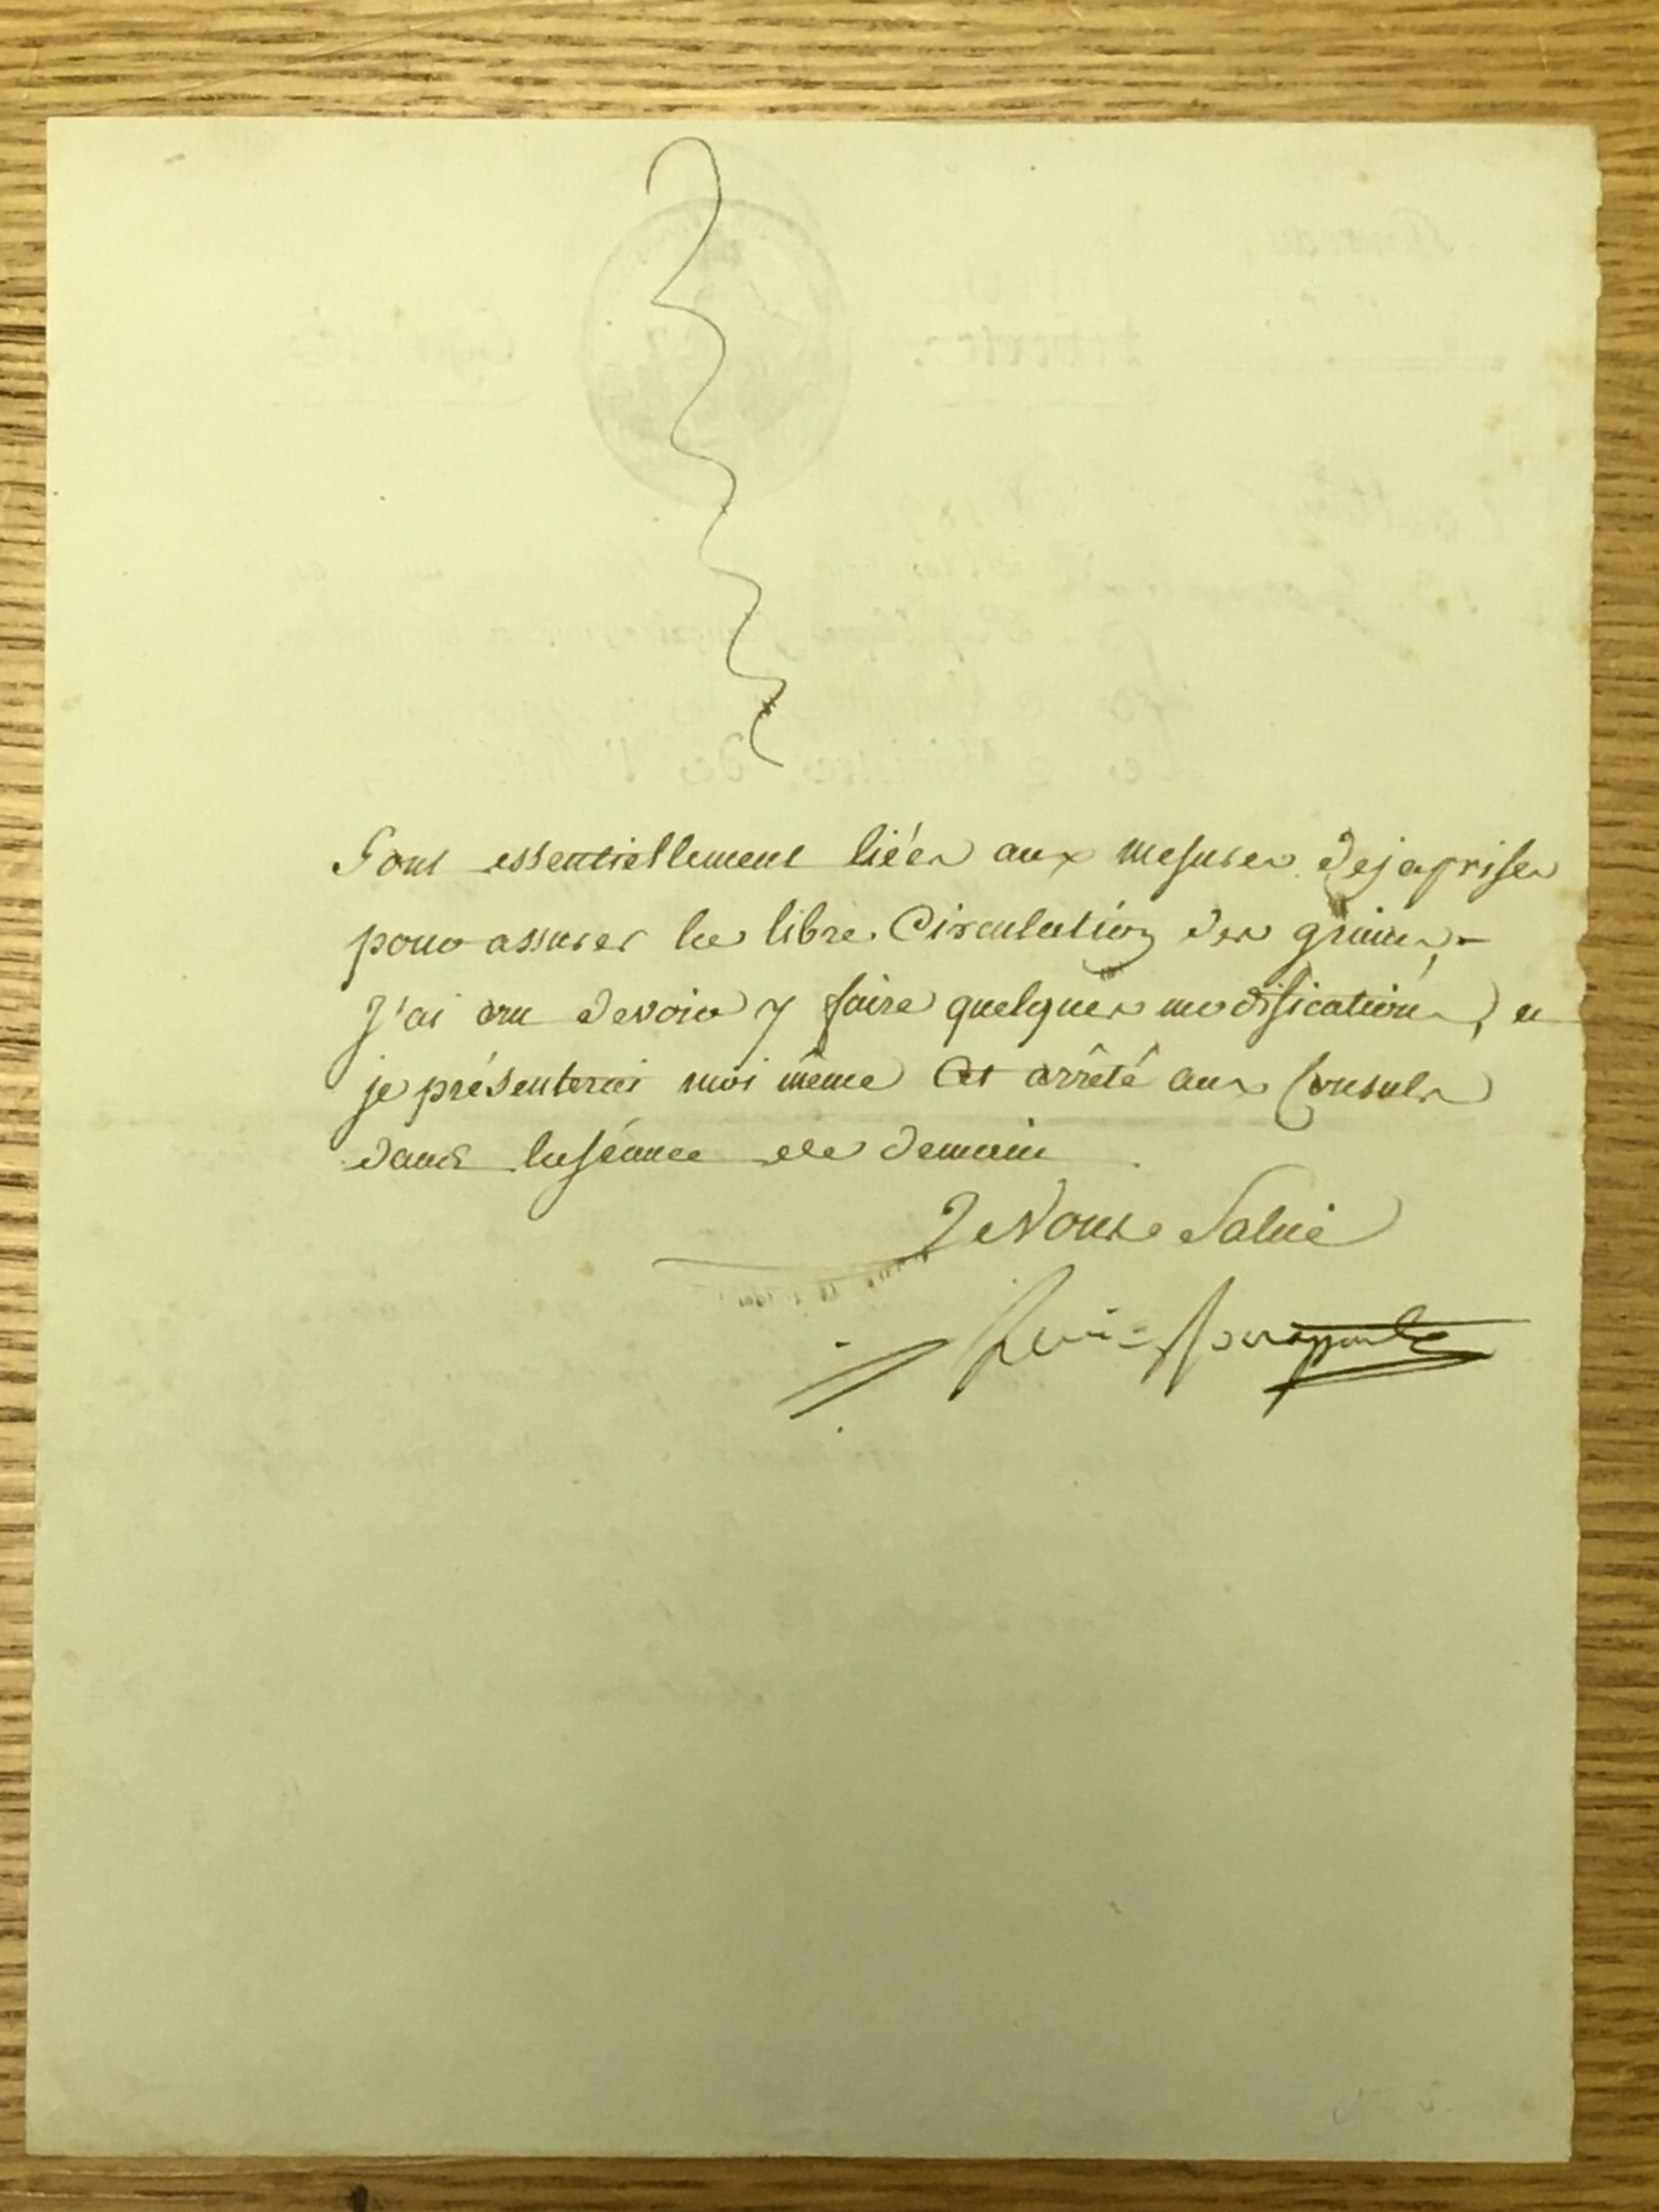 Sont essentiellement liées aux mesures deja prises
pour assurer la libre Circulation des grains,-
J'ai cru devoir y faire quelques modifications, et
je présenterai moi même Cet arrêté aux Consuls
dans la séance de demain.
Je Vous Salue
Lucien Bonaparte